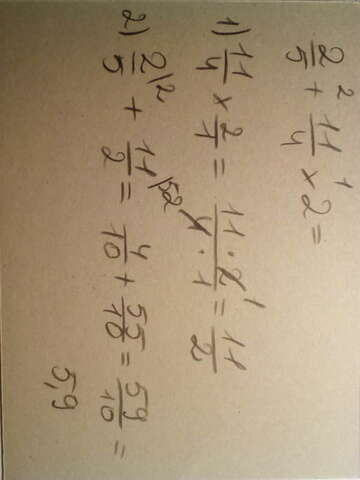 2/5 ² + 11/4 ¹ × 2 =
1) 11/4 × 2/1 = 11 · 2 ¹ / 2 4 · 1 = 11/2
2) 2/5 |2 + 11/2 |5 = 4/10 + 55/10 = 59/10 =
5,9